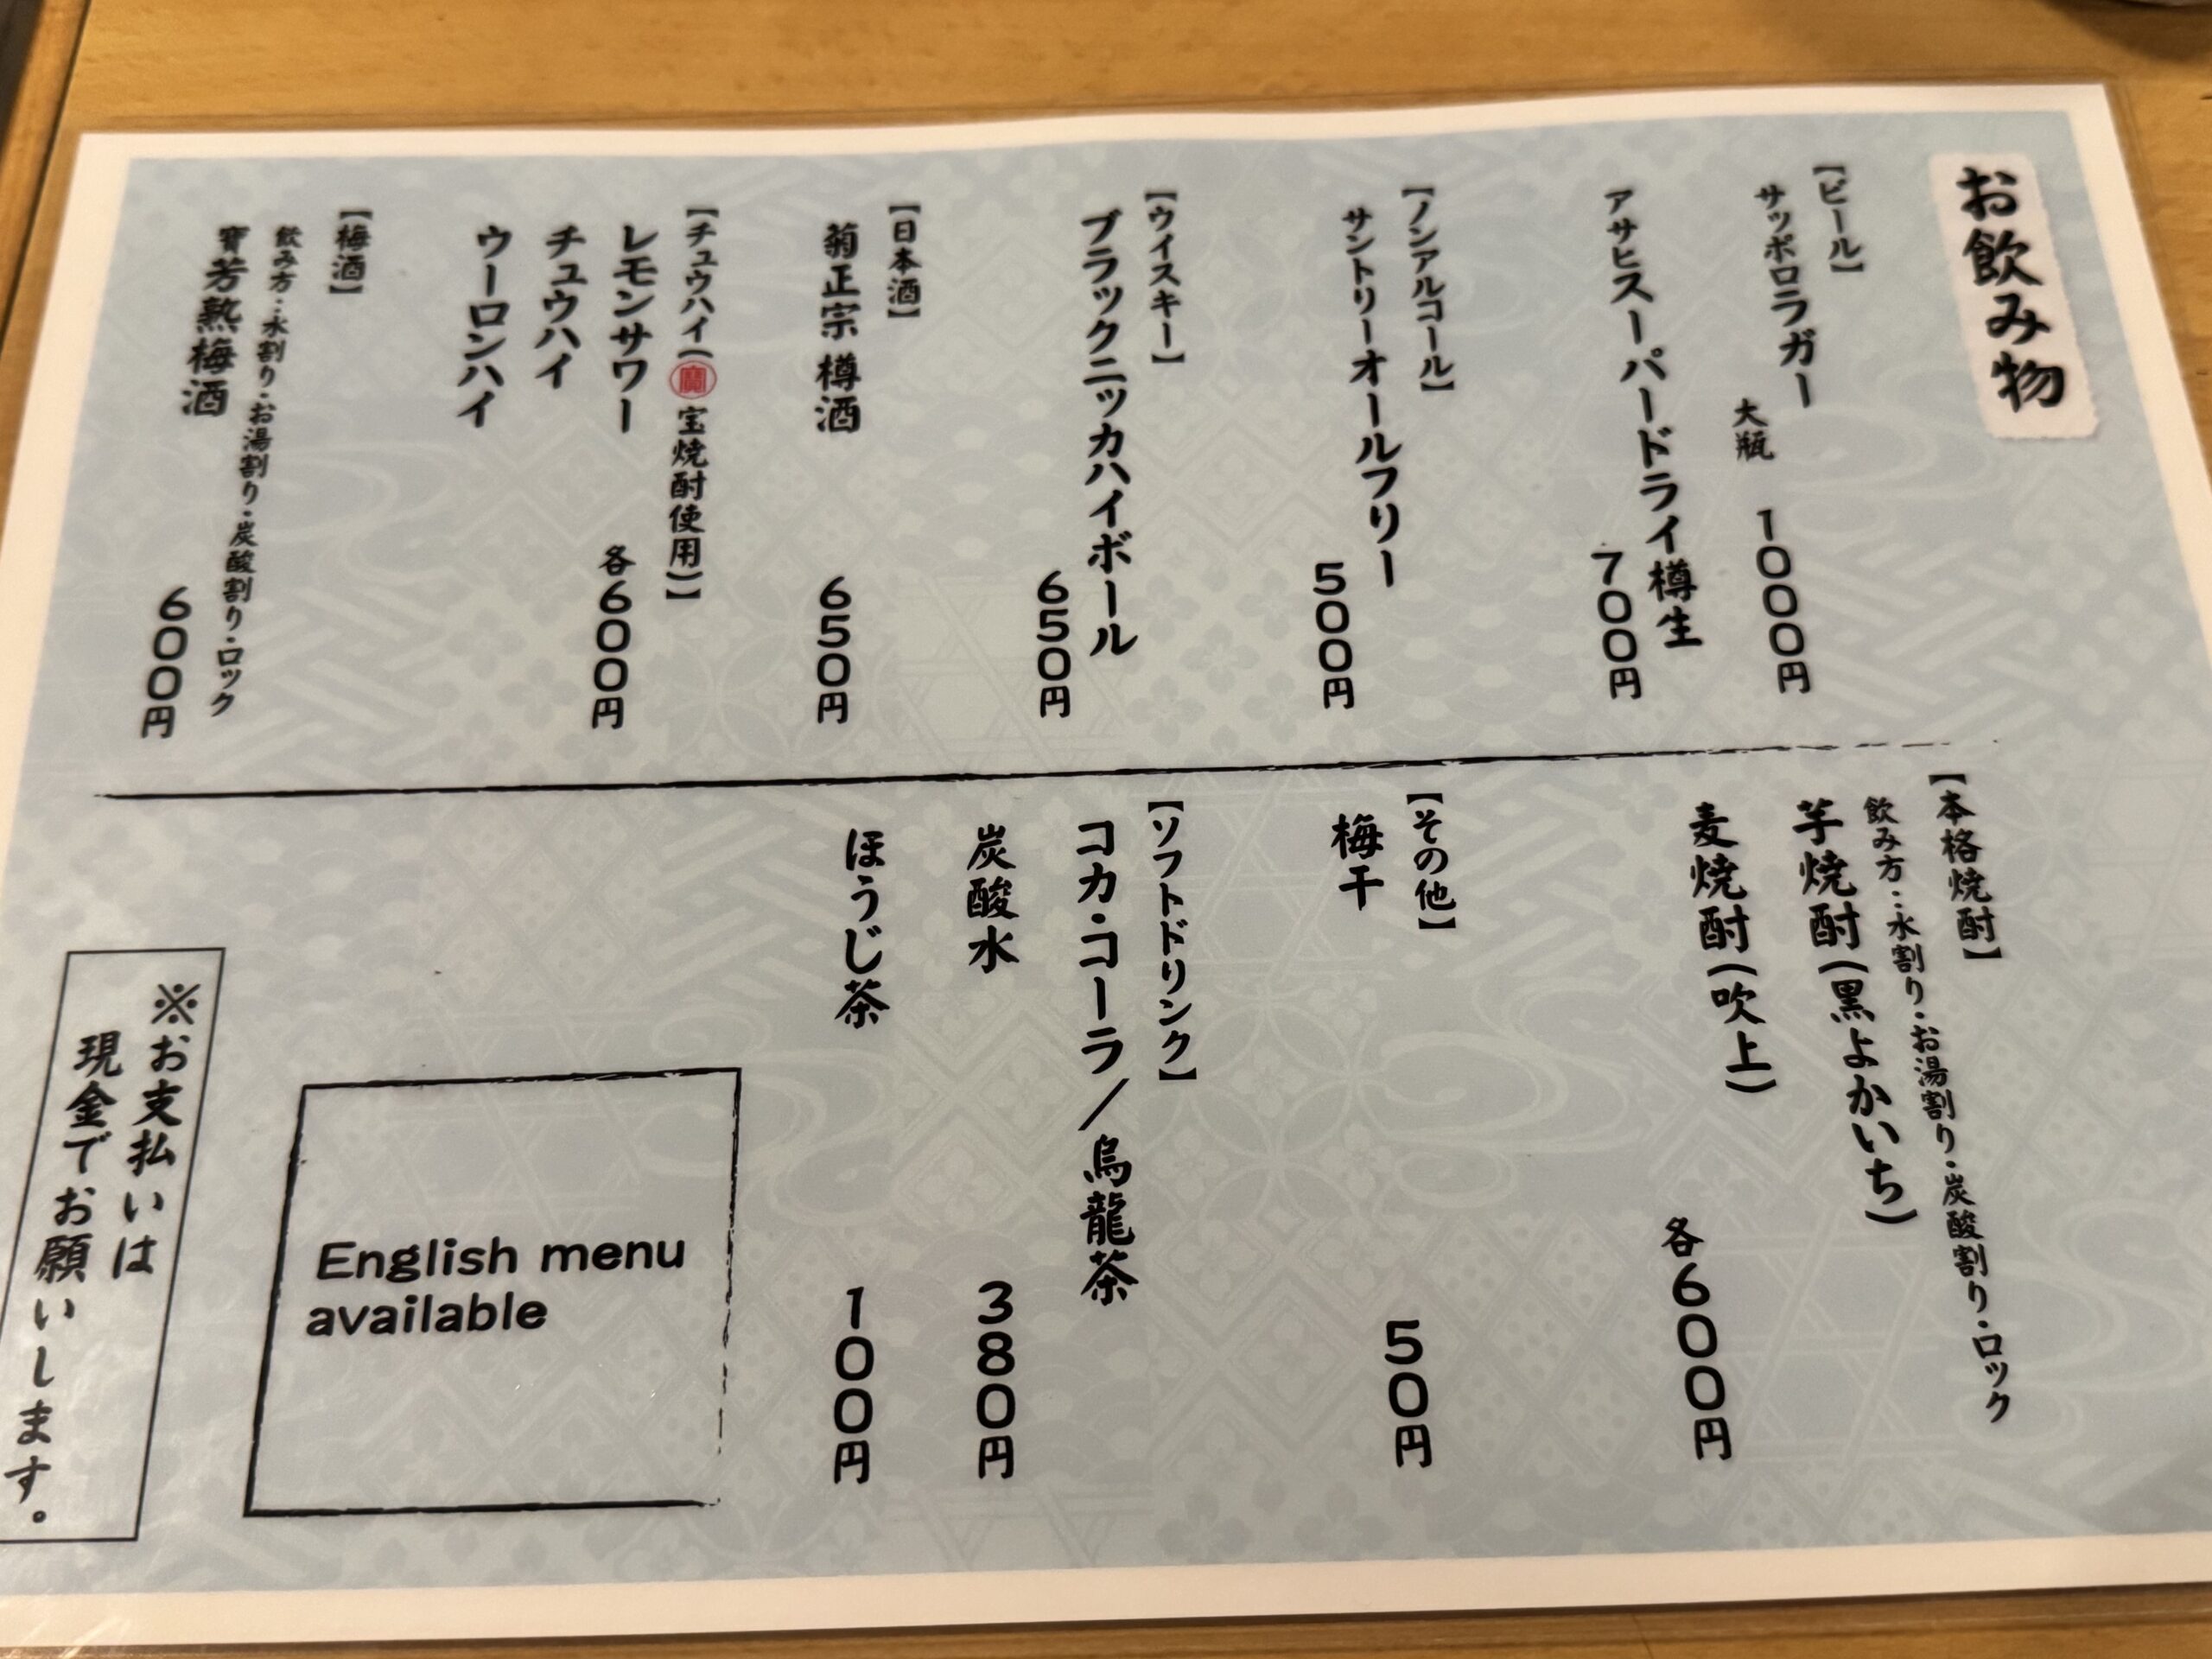 お飲み物
【ビール】
サッポロラガー
大瓶 1000円
アサヒスーパードライ樽生
700円
【ノンアルコール】
サントリーオールフリー
500円
【ウイスキー】
ブラックニッカハイボール
650円
【日本酒】
菊正宗 樽酒 650円
【チュウハイ(寶 宝焼酎使用)】
レモンサワー 各600円
チュウハイ
ウーロンハイ
【梅酒】
飲み方…水割り・お湯割り・炭酸割り・ロック
寶芳熟梅酒
600円
【本格焼酎】
飲み方…水割り・お湯割り・炭酸割り・ロック
芋焼酎(黒よかいち)
麦焼酎(吹上)
各600円
【その他】
梅干 50円
【ソフトドリンク】
コカ・コーラ／烏龍茶
炭酸水 380円
ほうじ茶 100円
English menu
available
※お支払いは
現金でお願いします。